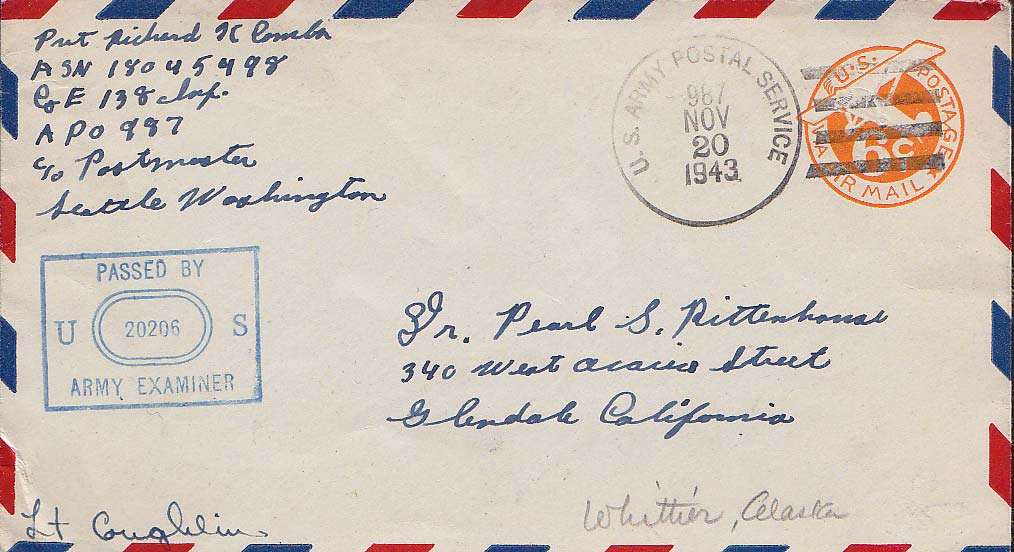 Pvt Richard K
ASN 18045498
Co E 138 Inf.
APO 987
c/o Postmaster
Seattle Washington
U.S. ARMY POSTAL SERVICE
987
NOV
20
1943
U.S. POSTAGE
6c
VIA AIR MAIL
PASSED BY
U 20206 S
ARMY EXAMINER
Pearl S. Rittenhouse
340 West Acacia Street
Glendale California
Lt Coughlin
Whittier, Alaska